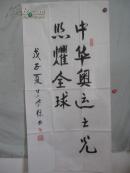 中华奥运之光
照耀全球
戊子夏